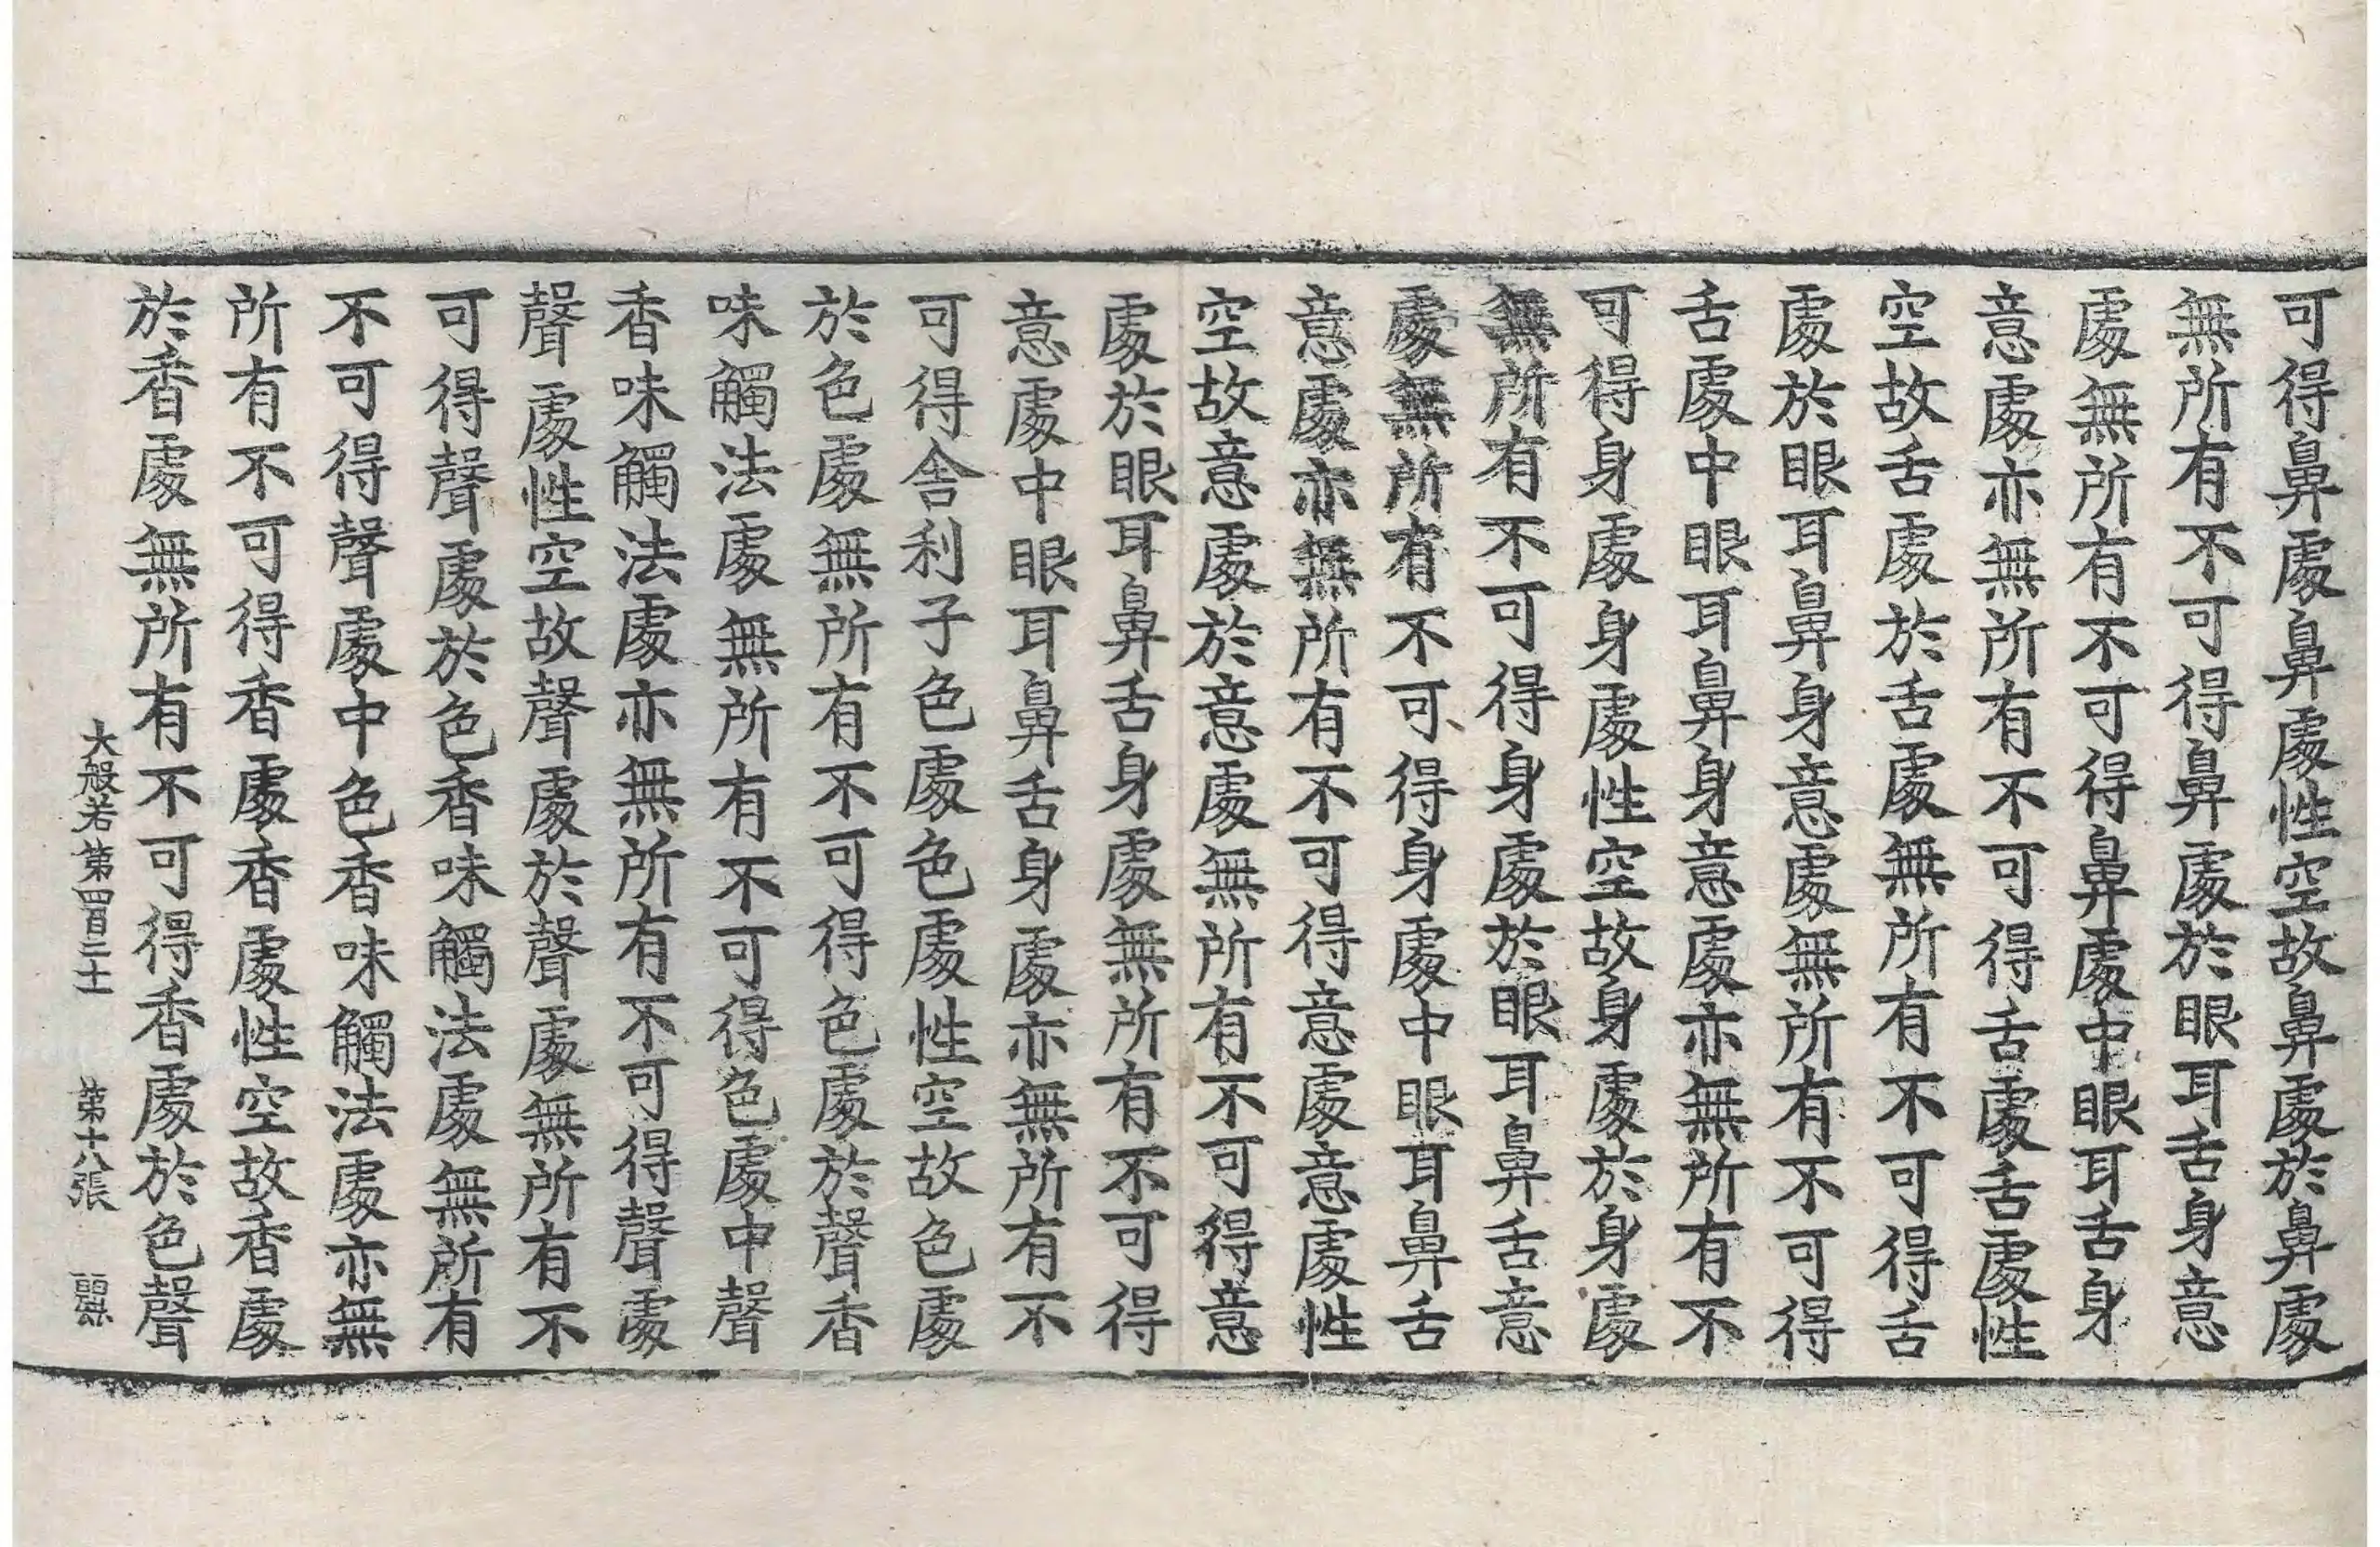 可得鼻處鼻處性空故鼻處於鼻處
無所有不可得鼻處於眼耳舌身意
處無所有不可得鼻處中眼耳舌身
意處亦無所有不可得舌處舌處性
空故舌處於舌處無所有不可得舌
處於眼耳鼻身意處無所有不可得
舌處中眼耳鼻身意處亦無所有不
可得身處身處性空故身處於身處
無所有不可得身處於眼耳鼻舌意
處無所有不可得身處中眼耳鼻舌
意處亦無所有不可得意處意處性
空故意處於意處無所有不可得意
處於眼耳鼻舌身處無所有不可得
意處中眼耳鼻舌身處亦無所有不
可得舍利子色處色處性空故色處
於色處無所有不可得色處於聲香
味觸法處無所有不可得色處中聲
香味觸法處亦無所有不可得聲處
聲處性空故聲處於聲處無所有不
可得聲處於色香味觸法處無所有
不可得聲處中色香味觸法處亦無
所有不可得香處香處性空故香處
於香處無所有不可得香處於色聲
大般若第四百二十一 第十八張 麗